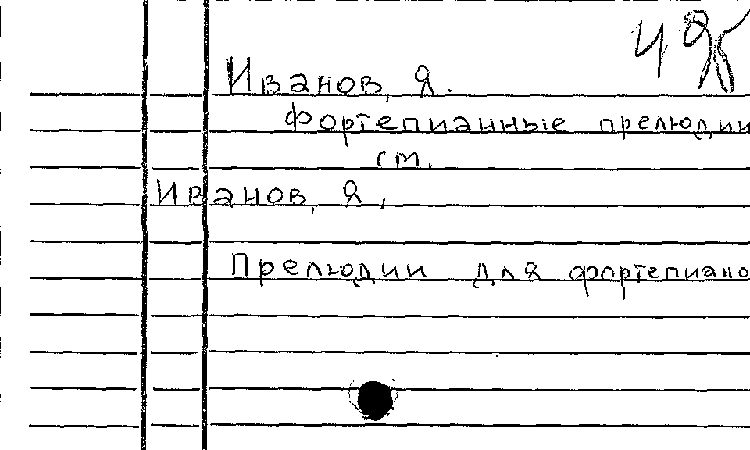 Иванов, Я.
Фортепианные прелюдии
см.
Иванов, Я.
Прелюдии для фортепиано